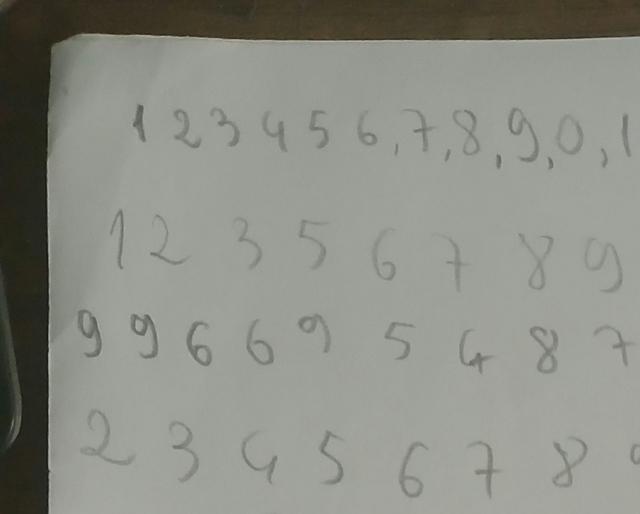 1 2 3 4 5 6, 7, 8, 9, 0, 1
1 2 3 5 6 7 8 9
9 9 6 6 9 5 4 8 7
2 3 4 5 6 7 8